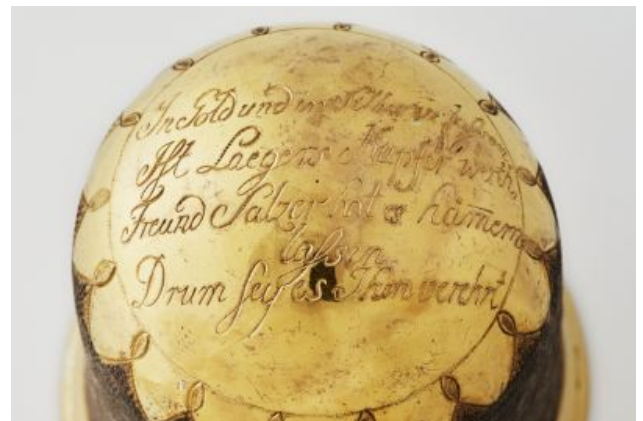 In Gold und in Silber zu faßen
Ist Laegens Kupfer werth,
Freund Salzer hat es hämern
laßen
Drum sey es Ihm verehrt